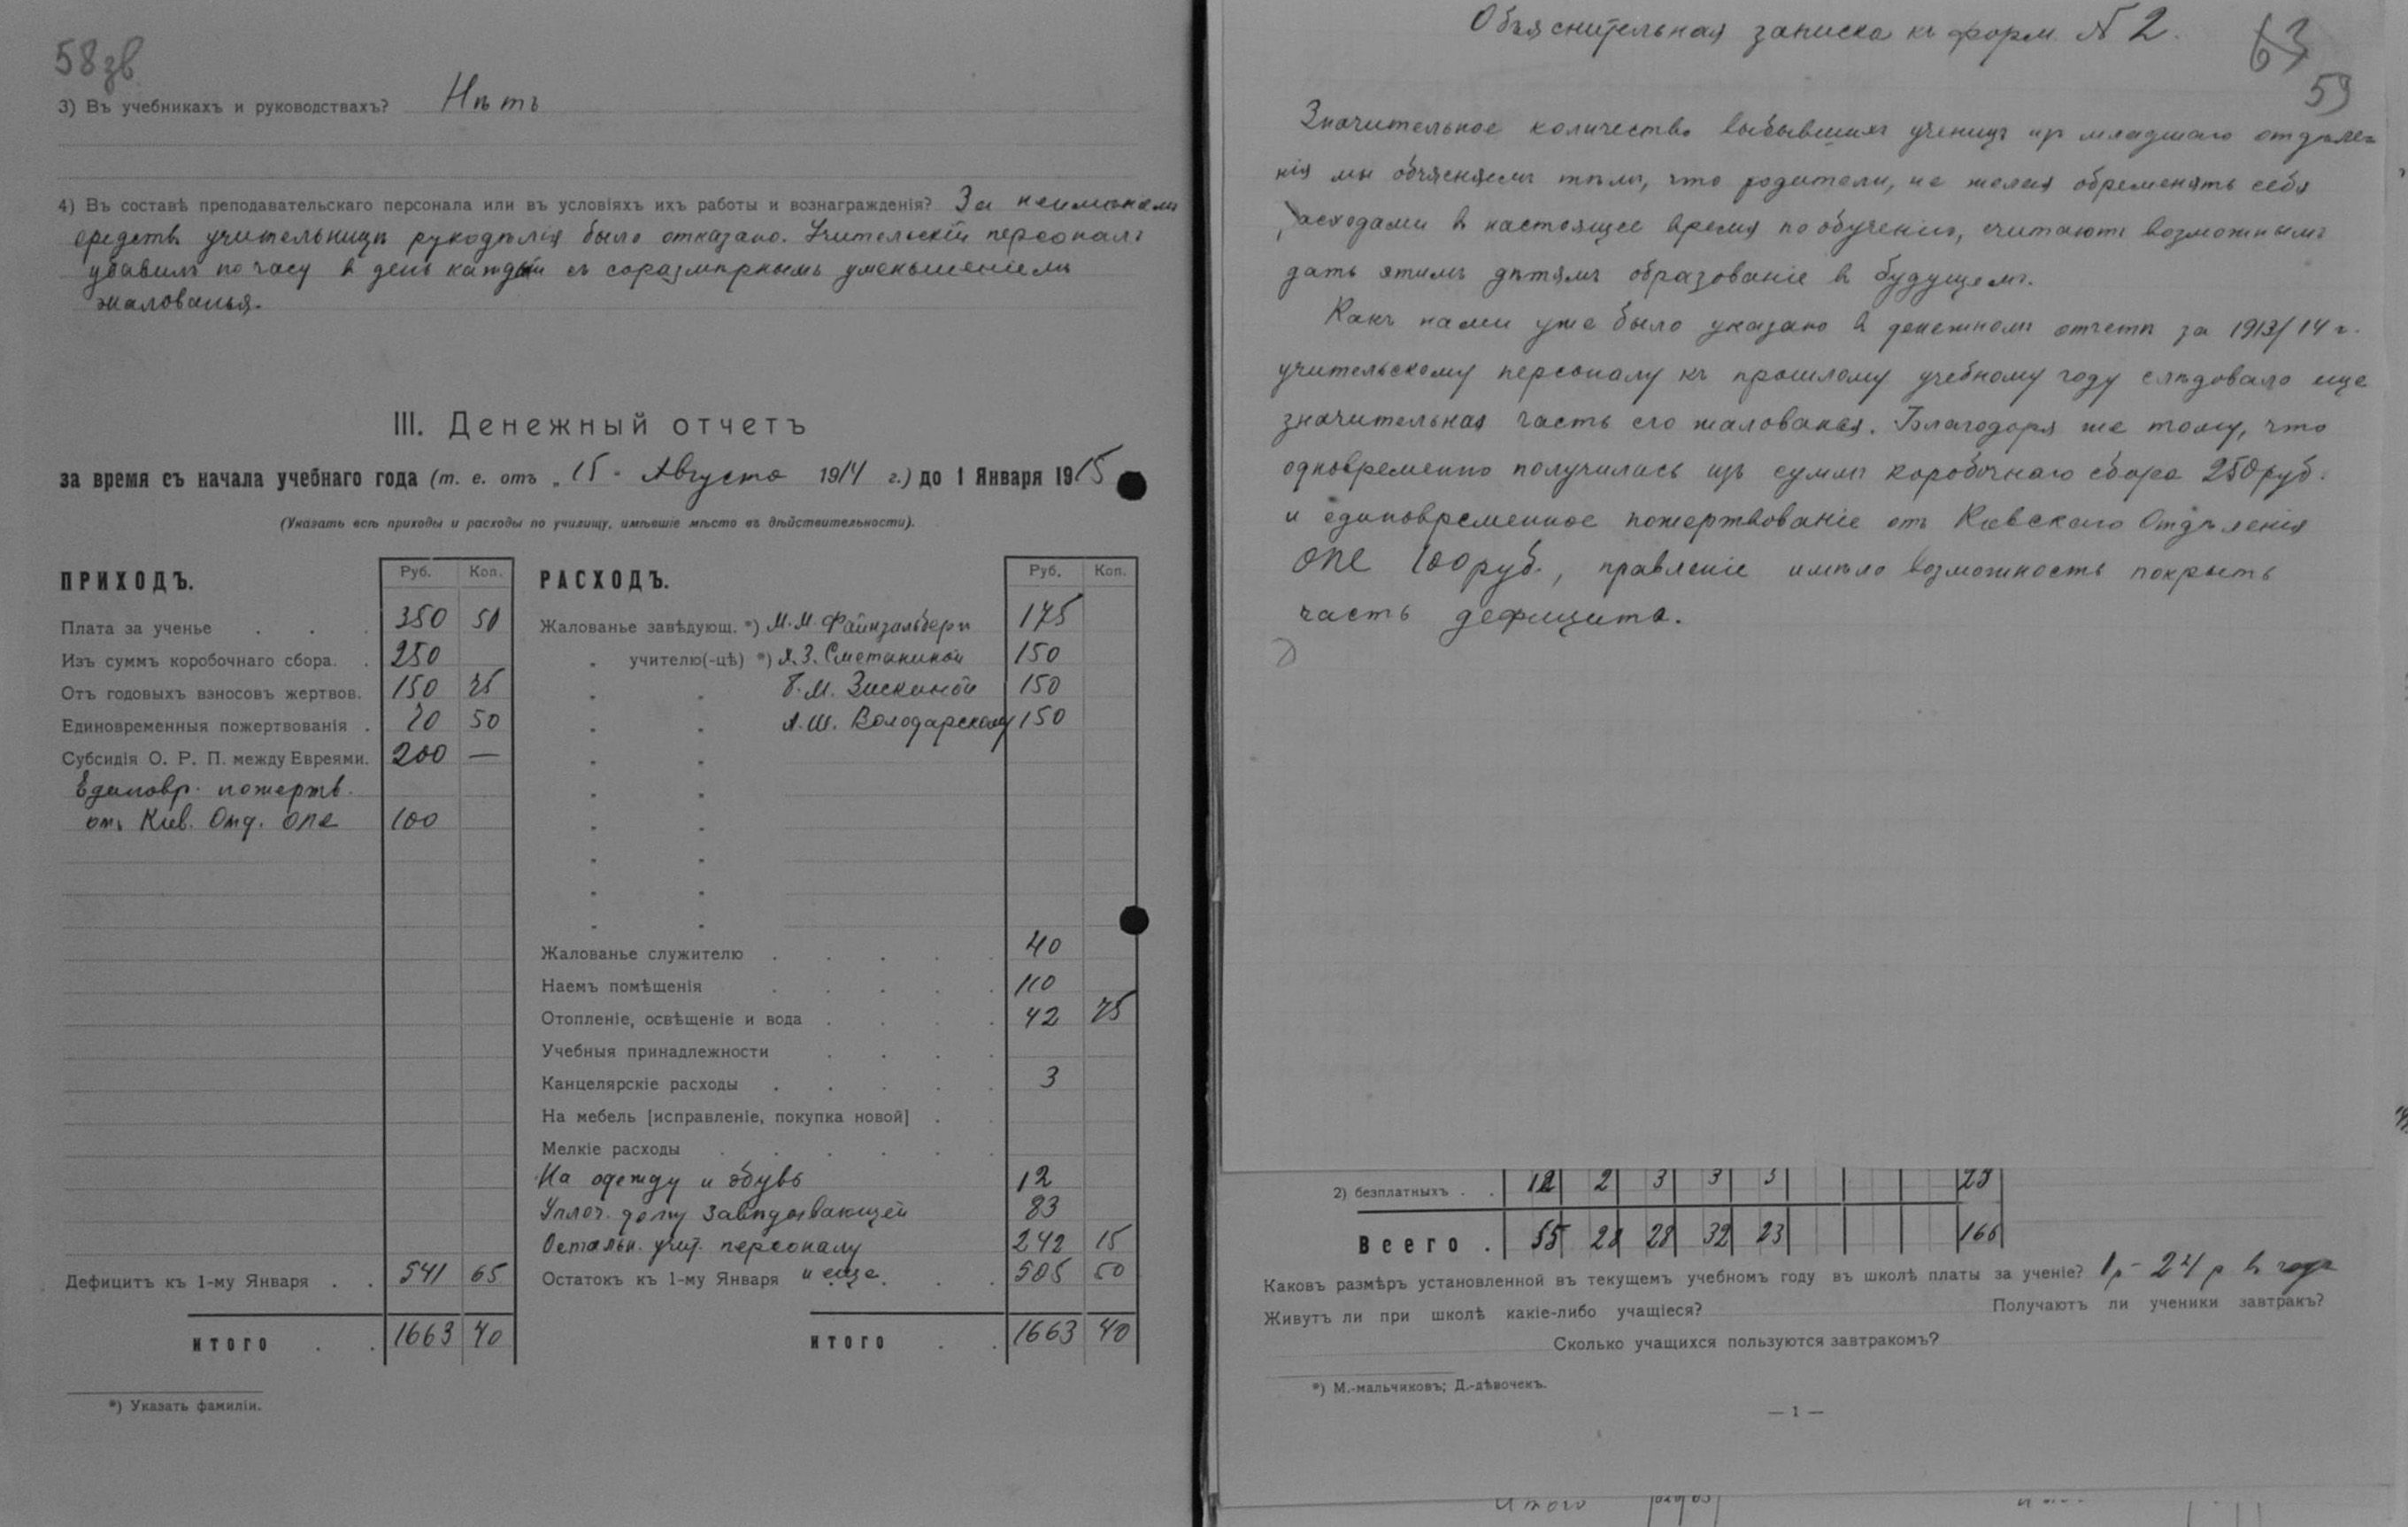 58 зв
3) Въ учебникахъ и руководствахъ? Нѣтъ
4) Въ составѣ преподавательскаго персонала или въ условіяхъ ихъ работы и вознагражденія? За неимѣніемъ
средствъ учительницѣ рукодѣлія было отказано. Учительскій персоналъ
убавилъ по часу въ день каждый съ соразмѣрнымъ уменьшеніемъ
жалованья.
III. Денежный отчетъ
за время съ начала учебнаго года (т. е. отъ „15" Августа 1914 г.) до 1 Января 1915
(Указать всѣ приходы и расходы по училищу, имѣвшіе мѣсто въ дѣйствительности).
ПРИХОДЪ. Руб. Коп.
Плата за ученье . . . 350 50
Изъ суммъ коробочнаго сбора. . 250
Отъ годовыхъ взносовъ жертвов. 150 75
Единовременныя пожертвованія . 20 50
Субсидія О. Р. П. между Евреями. 200 —
Единовр. пожертв.
отъ Кіев. Отд. ОПЕ 100
Дефицитъ къ 1-му Января . . 541 65
ИТОГО . . 1663 40
*) Указать фамиліи.
РАСХОДЪ. Руб. Коп.
Жалованье завѣдующ. *) М. М. Файнзильбергъ 175
„ учителю(-цѣ) *) Я. З. Сметаниной 150
„ „ Б. М. Зискиной 150
„ „ А. Ш. Володарскому 150
Жалованье служителю . . . . . 40
Наемъ помѣщенія . . . . . 110
Отопленіе, освѣщеніе и вода . . . . 42 75
Учебныя принадлежности . . . .
Канцелярскіе расходы . . . . . 3
На мебель [исправленіе, покупка новой] . .
Мелкіе расходы . . . . . .
На одежду и обувь 12
Уплоч. долгу Завѣдывающей 83
Остальн. учит. персоналу 242 15
Остатокъ къ 1-му Января и еще . . . 505 50
ИТОГО . . 1663 40
Объяснительная записка къ форм. № 2.
63
59
Значительное количество выбывшихъ ученицъ изъ младшаго отдѣле-
нія мы объясняемъ тѣмъ, что родители, не желая обременять себя
расходами въ настоящее время по обученію, считаютъ возможнымъ
дать этимъ дѣтямъ образованіе въ будущемъ.
Какъ нами уже было указано въ денежномъ отчетѣ за 1913/14 г.
учительскому персоналу къ прошлому учебному году слѣдовало еще
значительная часть его жалованья. Благодаря же тому, что
одновременно получились изъ суммъ коробочнаго сбора 250 руб.
и единовременное пожертвованіе отъ Кіевскаго Отдѣленія
ОПЕ 100 руб., правленіе имѣло возможность покрыть
часть дефицита.
2) безплатныхъ . . 12 2 3 3 3
Всего . 55 28 28 32 23 166
Каковъ размѣръ установленной въ текущемъ учебномъ году въ школѣ платы за ученіе? 1 р - 24 р въ годъ
Живутъ ли при школѣ какіе-либо учащіеся? Получаютъ ли ученики завтракъ?
Сколько учащихся пользуются завтракомъ?
*) М.-мальчиковъ; Д.-дѣвочекъ.
— 1 —
Итого